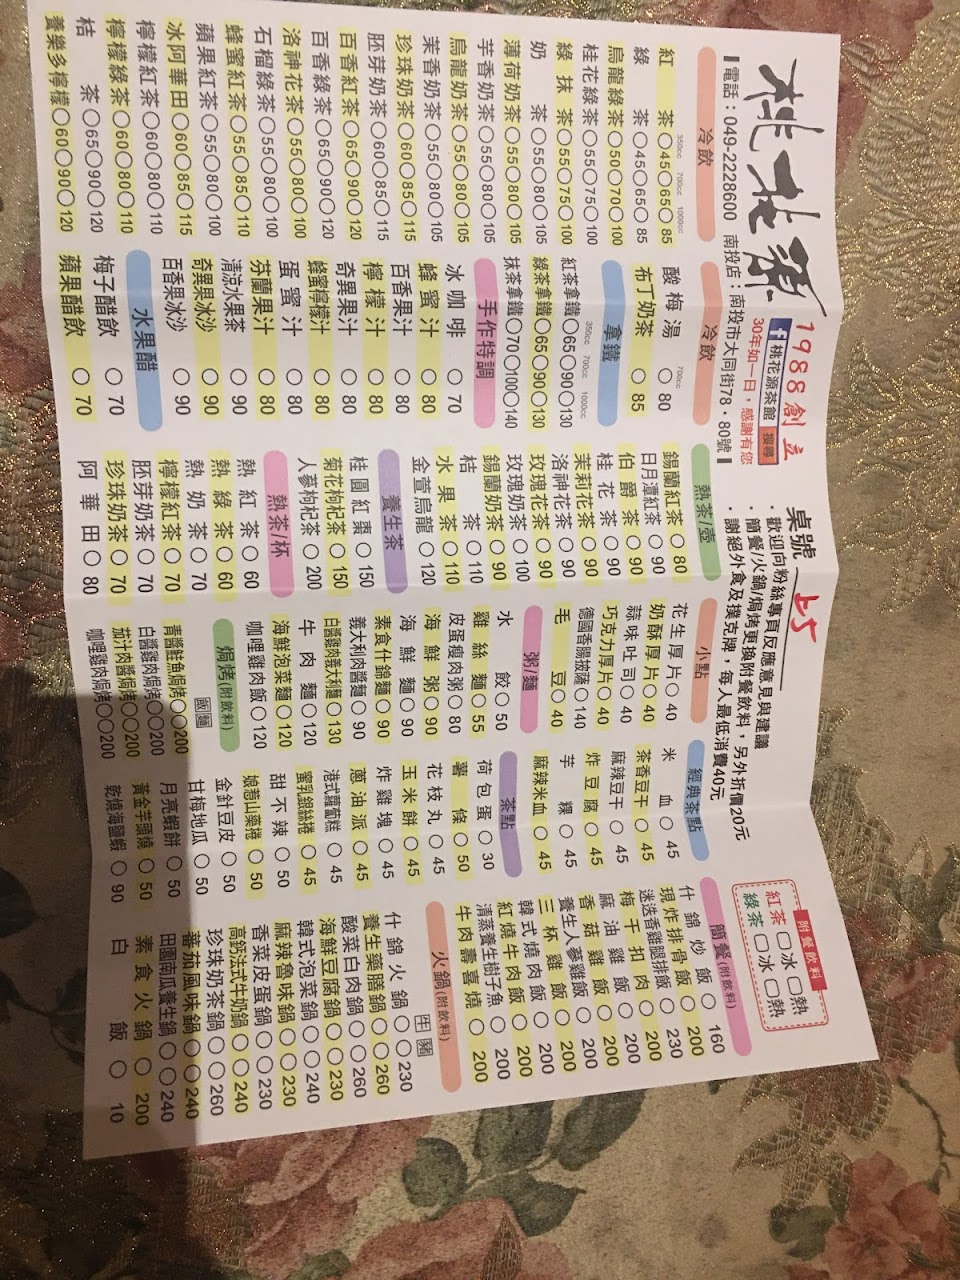 桃花源
1988創立
f 桃花源茶館 搜尋
30年如一日，感謝有您
電話：049-2228600 南投店：南投市大同街78、80號
桌號 上5
・歡迎向粉絲專頁反應意見與建議
・簡餐/火鍋/焗烤更換附餐飲料，另外折價20元
・謝絕外食及撲克牌，每人最低消費40元
附餐飲料
紅茶□冰□熱
綠茶□冰□熱
冷飲
350cc 700cc 1000cc
紅茶○45○65○85
綠茶○45○65○85
烏龍綠茶○50○70○100
桂花綠茶○55○75○100
綠抹茶○55○75○100
奶茶○55○80○105
薄荷奶茶○55○80○105
芋香奶茶○55○80○105
烏龍奶茶○55○80○105
茉香奶茶○55○80○105
珍珠奶茶○60○85○115
胚芽奶茶○60○85○115
百香紅茶○65○90○120
百香綠茶○65○90○120
洛神花茶○55○80○100
石榴綠茶○55○80○100
蜂蜜紅茶○55○85○110
蘋果紅茶○55○80○100
冰阿華田○60○85○115
檸檬紅茶○60○80○110
檸檬綠茶○60○80○110
桔茶○65○90○120
養樂多檸檬○60○90○120
冷飲
700cc
酸梅湯○80
布丁奶茶○85
拿鐵
350cc 700cc 1000cc
紅茶拿鐵○65○90○130
綠茶拿鐵○65○90○130
抹茶拿鐵○70○100○140
手作特調
冰咖啡○70
蜂蜜汁○80
百香果汁○80
檸檬汁○80
奇異果汁○80
蜂蜜檸檬汁○80
蛋蜜汁○80
芬蘭果汁○80
清涼水果茶○90
奇異果冰沙○90
百香果冰沙○90
水果醋
梅子醋飲○70
蘋果醋飲○70
熱茶/壺
錫蘭紅茶○80
日月潭紅茶○90
伯爵茶○90
桂花茶○90
茉莉花茶○90
洛神花茶○90
玫瑰花茶○90
玫瑰奶茶○100
錫蘭奶茶○90
桔茶○110
水果茶○110
金萱烏龍○120
養生茶
桂圓紅棗○150
菊花枸杞茶○150
人蔘枸杞茶○200
熱茶/杯
熱紅茶○60
熱綠茶○60
熱奶茶○70
檸檬紅茶○70
胚芽奶茶○70
珍珠奶茶○70
阿華田○80
小點
花生厚片○40
奶酥厚片○40
蒜味吐司○40
巧克力厚片○40
德國香腸披薩○140
毛豆○40
粥/麵
水餃○50
雞絲麵○55
皮蛋瘦肉粥○80
海鮮粥○90
海鮮麵○90
素食什錦麵○90
義大利肉醬麵○90
白醬雞肉義大利麵○130
牛肉麵○120
海鮮泡菜麵○120
咖哩雞肉飯○120
焗烤(附飲料)
飯 麵
青醬鮭魚焗烤○○200
白醬雞肉焗烤○○200
茄汁肉醬焗烤○○200
咖哩雞肉焗烤○○200
經典茶點
米血○45
茶香豆干○45
麻辣豆干○45
炸豆腐○45
芋粿○45
麻辣米血○45
茶點
荷包蛋○30
薯條○50
花枝丸○45
玉米餅○45
炸雞塊○45
蔥油派○45
港式蘿蔔糕○45
蜜乳銀絲捲○45
甜不辣○50
娘惹山藥捲○50
金針豆皮○50
甘梅地瓜○50
月亮蝦餅○50
黃金芋頭燒○50
乾燒海鹽蝦○90
簡餐(附飲料)
什錦炒飯○160
現炸排骨飯○200
迷迭香雞腿排飯○230
梅干扣肉○200
麻油雞飯○200
香菇雞飯○200
養生人蔘雞飯○200
三杯雞飯○200
韓式燒肉飯○200
紅燒牛肉飯○200
清蒸養生樹子魚○200
牛肉壽喜燒○200
火鍋(附飲料)
牛 豬
什錦火鍋○○230
養生藥膳鍋○○260
酸菜白肉鍋○○260
海鮮豆腐鍋○○230
韓式泡菜鍋○○240
麻辣魯味鍋○○230
香菜皮蛋鍋○○230
高鈣法式牛奶鍋○○240
珍珠奶茶鍋○○260
蕃茄風味鍋○○240
田園南瓜養生鍋○○240
素食火鍋○200
白飯○10